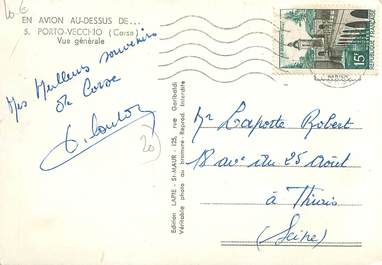 10 €
EN AVION AU-DESSUS DE...
5. PORTO-VECCHIO (Corse)
Vue générale
Mes Meilleurs souvenirs
de Corse
20
Edition LAPIE - St-MAUR - 125, rue Garibaldi
Véritable photo au bromure - Reprod. interdite
15F
Mr Laporte Robert
18 ave du 25 Août
à Thiais
(Seine)